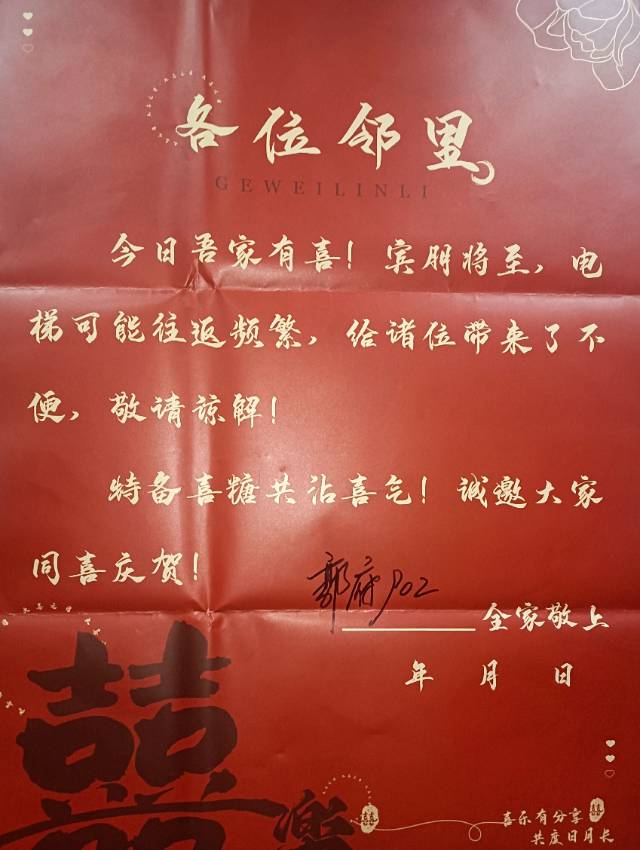 各位邻里
GEWEILINLI
今日吾家有喜！宾朋将至，电
梯可能往返频繁，给诸位带来了不
便，敬请谅解！
特备喜糖共沾喜气！诚邀大家
同喜庆贺！
郭府902
全家敬上
年 月 日
囍
囍
囍
喜乐有分享
共度日月长